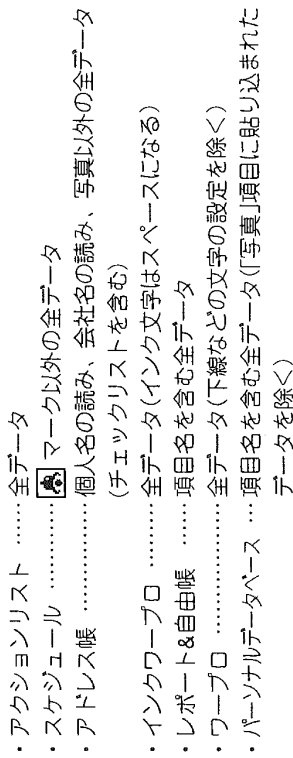 ・アクションリスト ……全データ
・スケジュール …………マーク以外の全データ
・アドレス帳 ……………個人名の読み、会社名の読み、写真以外の全データ
(チェックリストを含む)
・インクワープロ ………全データ(インク文字はスペースになる)
・レポート&自由帳 ……項目名を含む全データ
・ワープロ ………………全データ(下線などの文字の設定を除く)
・パーソナルデータベース …項目名を含む全データ(「写真」項目に貼り込まれた
データを除く)